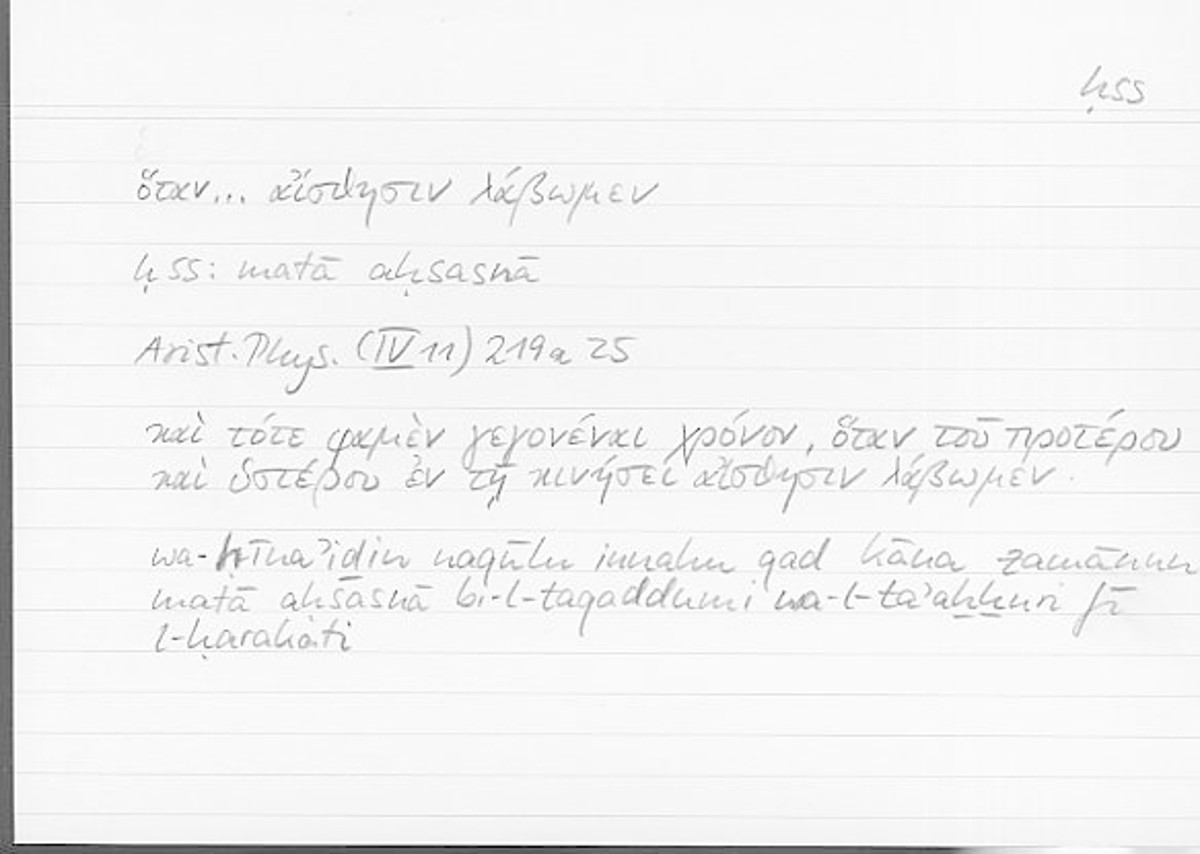 ḥss
ὅταν... αἴσθησιν λάβωμεν
ḥss: matā aḥsasnā
Arist. Phys. (IV 11) 219a 25
καὶ τότε φαμὲν γεγονέναι χρόνον, ὅταν τοῦ προτέρου
καὶ ὑστέρου ἐν τῇ κινήσει αἴσθησιν λάβωμεν.
wa-ḥīnaʾidin naqūlu innahu qad kāna zamānun
matā aḥsāsnā bi-l-taqaddumi wa-l-taʾaḫḫuri fī
l-ḥarakati